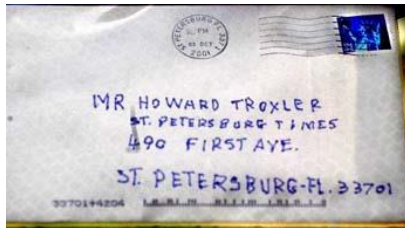 ST PETERSBURG FL
PM
OCT
2001
MR HOWARD TROXLER
ST. PETERSBURG TIMES
490 FIRST AVE.
ST. PETERSBURG-FL. 33701
33701+4204